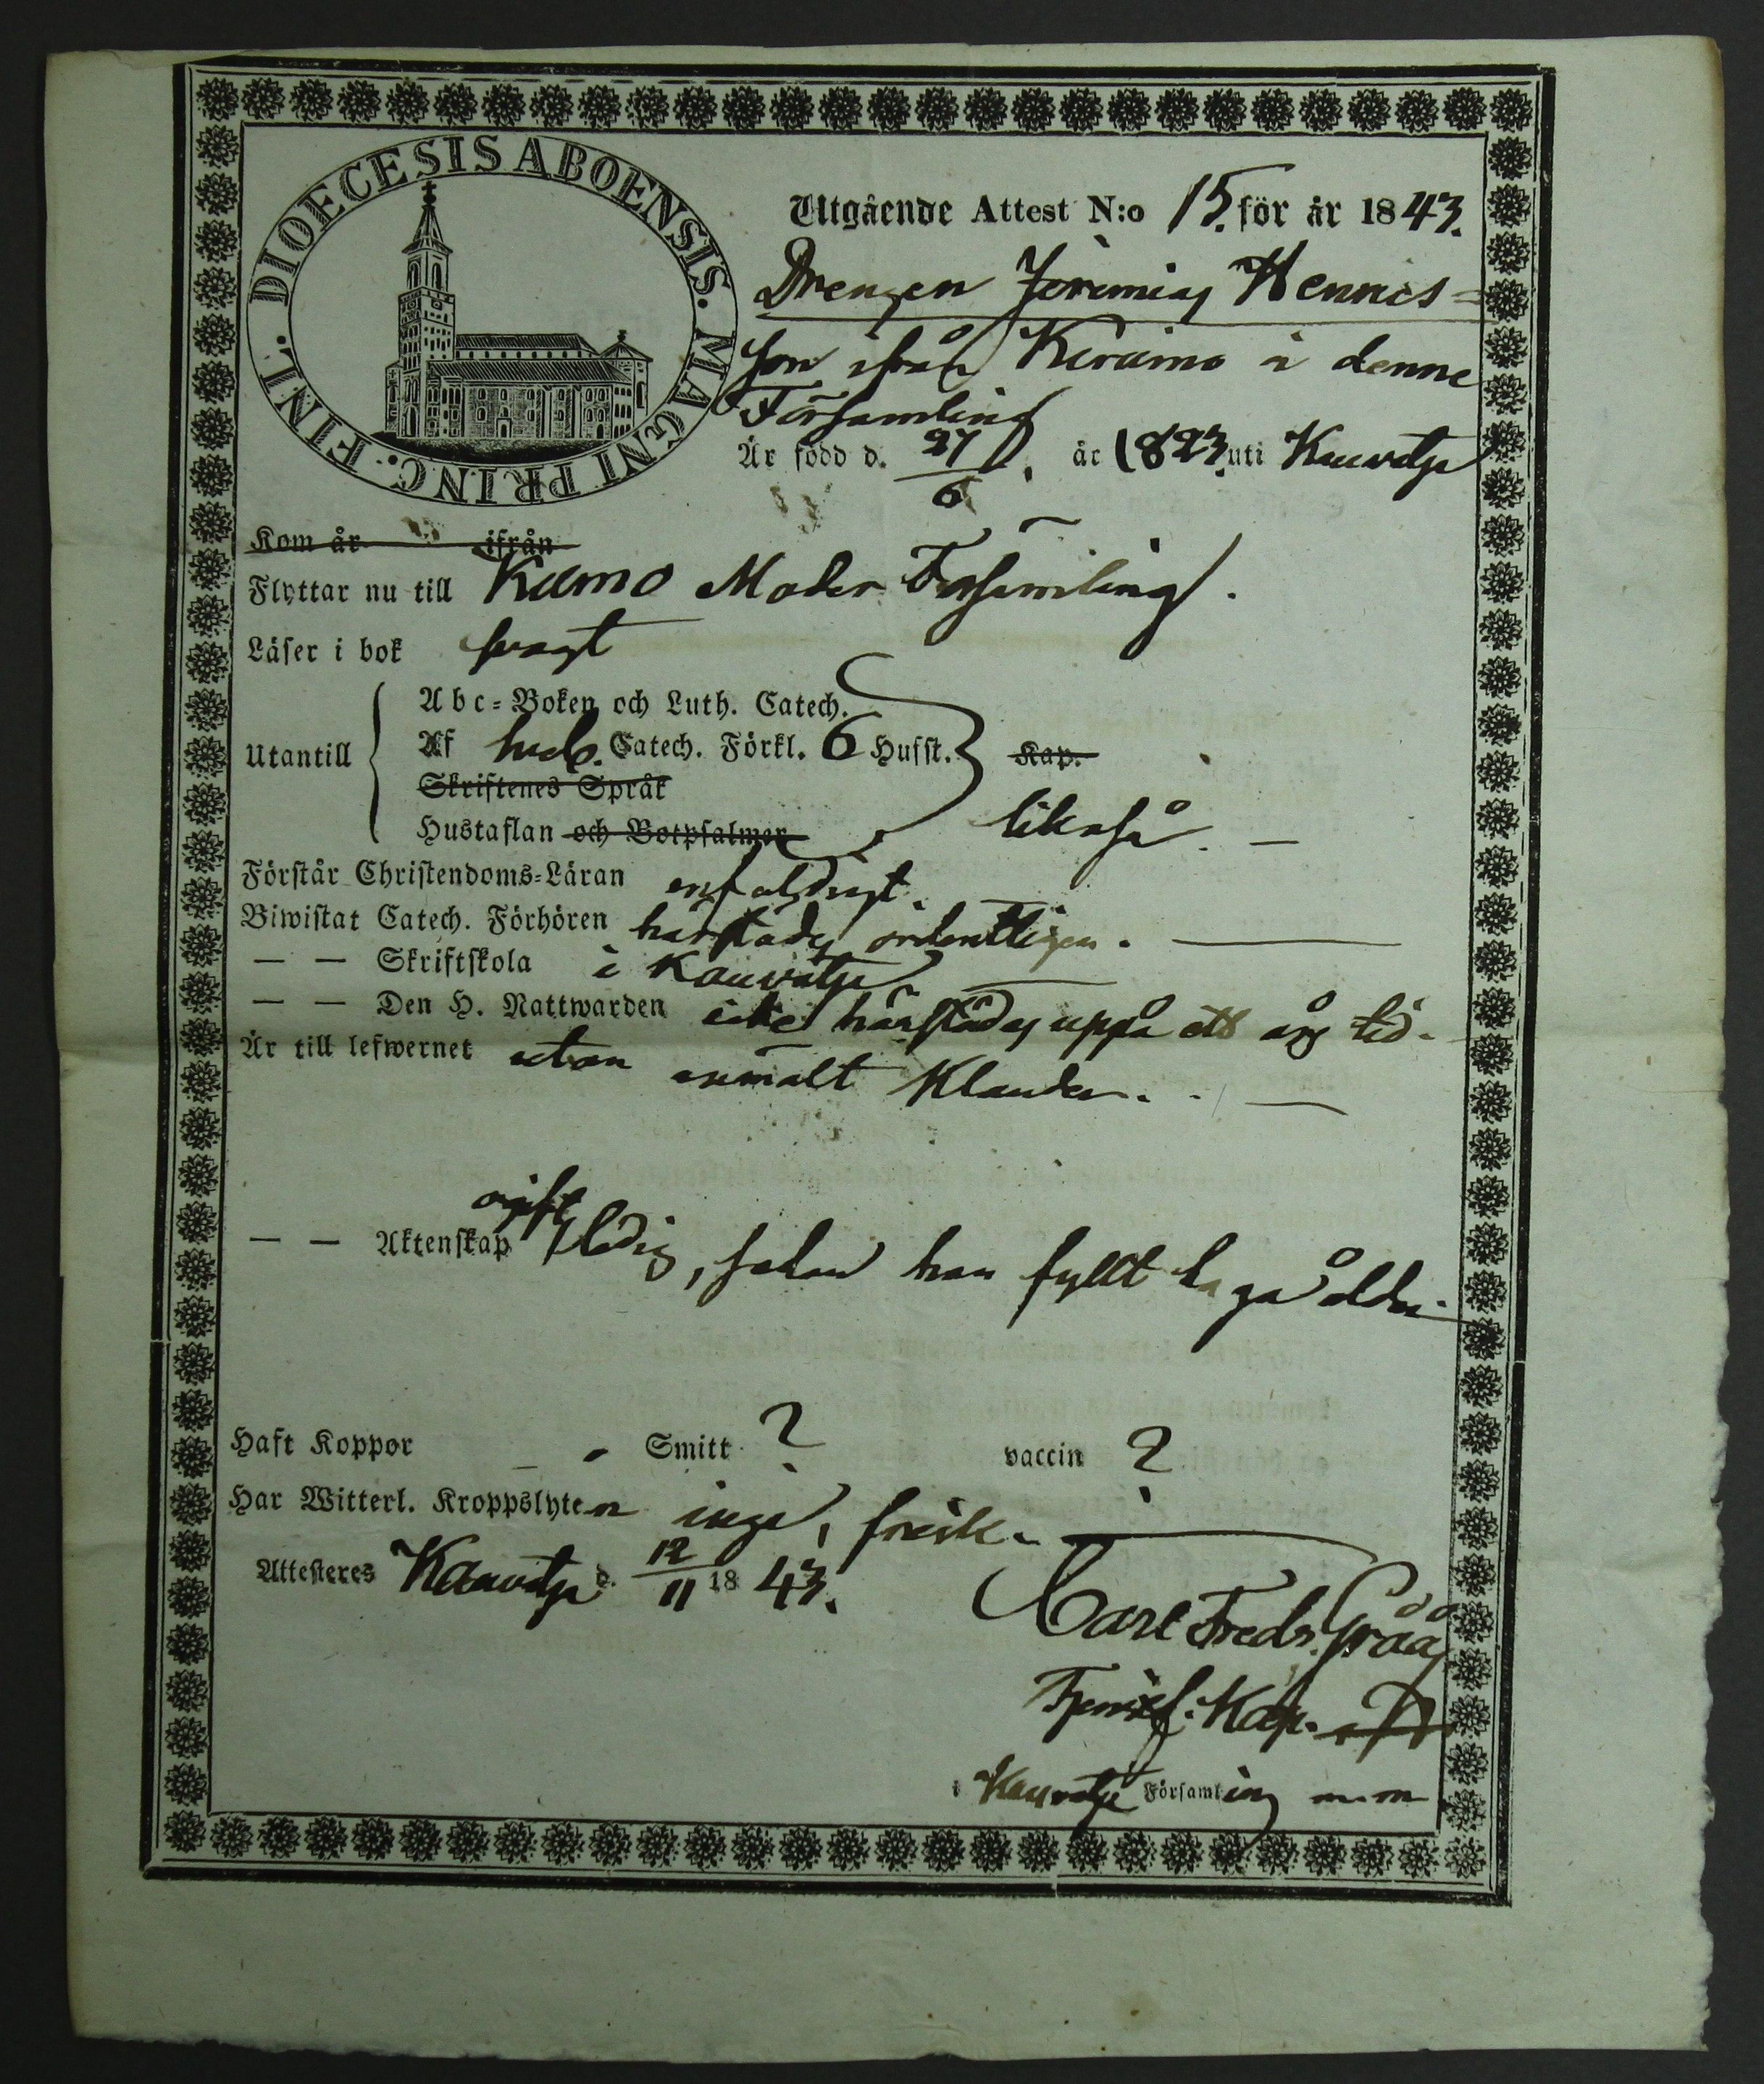 DIOECESIS ABOENSIS. MAGNI PRINC. FINL.
Utgående Attest N:o 15. för år 1843.
Drengen Jeremias Hennics=
son ifrån Keraimo i denne
Församling
Är född d. 27/6. år 1823. uti Kauvatsa
Kom år ifrån
Flyttar nu till Kumo Moder Församling.
Läser i bok svagt
Utantill
Abc=Boken och Luth. Catech.
Af Catech. Förkl. 6 Husst. Kap.
Skriftenes Språk
Hustaflan och Botpsalmer likaså. —
Förstår Christendoms=Läran enfaldigt.
Biwistat Catech. Förhören härstädes ordentligen. —
— — Skriftskola i Kauvatsa —
— — Den H. Nattwarden icke härstädes uppå ett års tid.
Är till lefwernet utan anmält Klander. —
ogift
— — Äktenskap ledig, sedan han fyllt laga ålder.
Haft Koppor - Smitt ? vaccin ?
Har Witterl. Kroppslyten inga, frisk. —
Attesteres Kauvatsa d. 12/11 1843.
Carl Fredr. Gråå
Kap.
i Kauvatsa Församling m.m